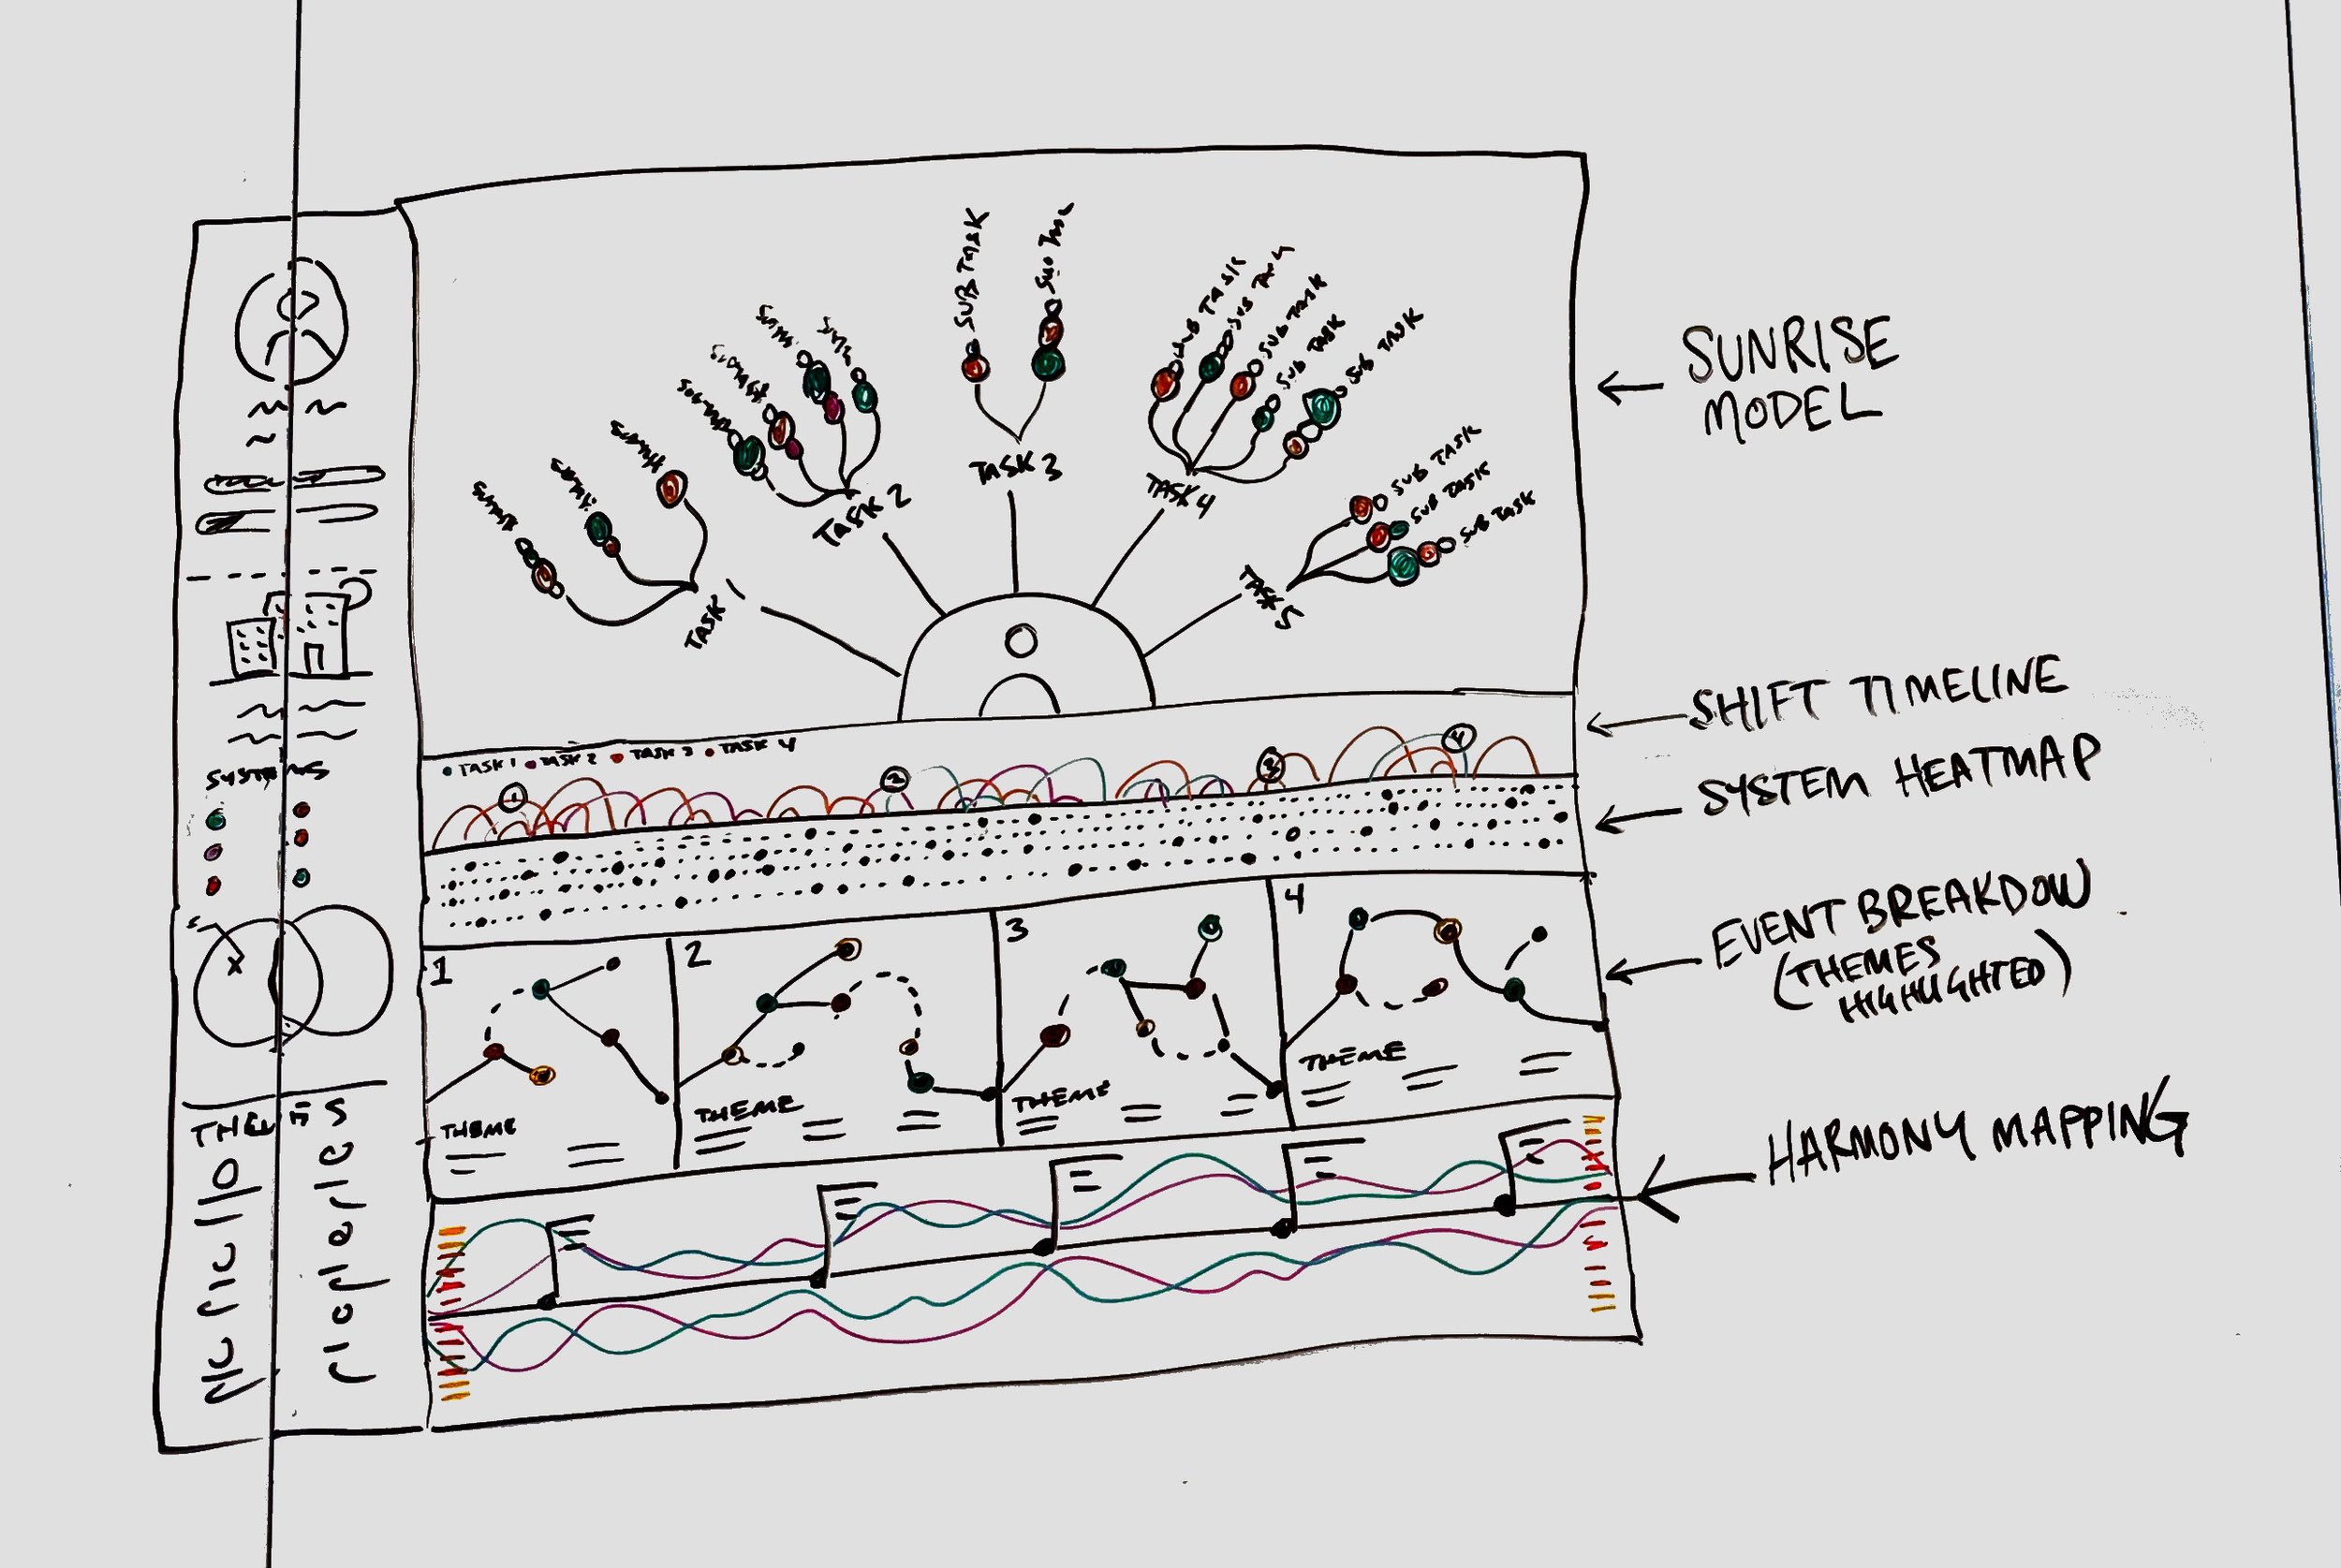 SUB TASK
SUB TASK
SUB TASK
SUB TASK
SUB TASK
SUB TASK
SUB TASK
SUB TASK
SUB TASK
TASK 1
TASK 2
TASK 3
TASK 4
TASK 5
SUNRISE
MODEL
SHIFT TIMELINE
• TASK 1 • TASK 2 • TASK 3 • TASK 4
1
2
3
4
SYSTEM HEATMAP
SYSTEMS
EVENT BREAKDOW
(THEMES
HIGHLIGHTED)
1
2
3
4
THEME
THEME
THEME
THEME
THEMES
HARMONY MAPPING